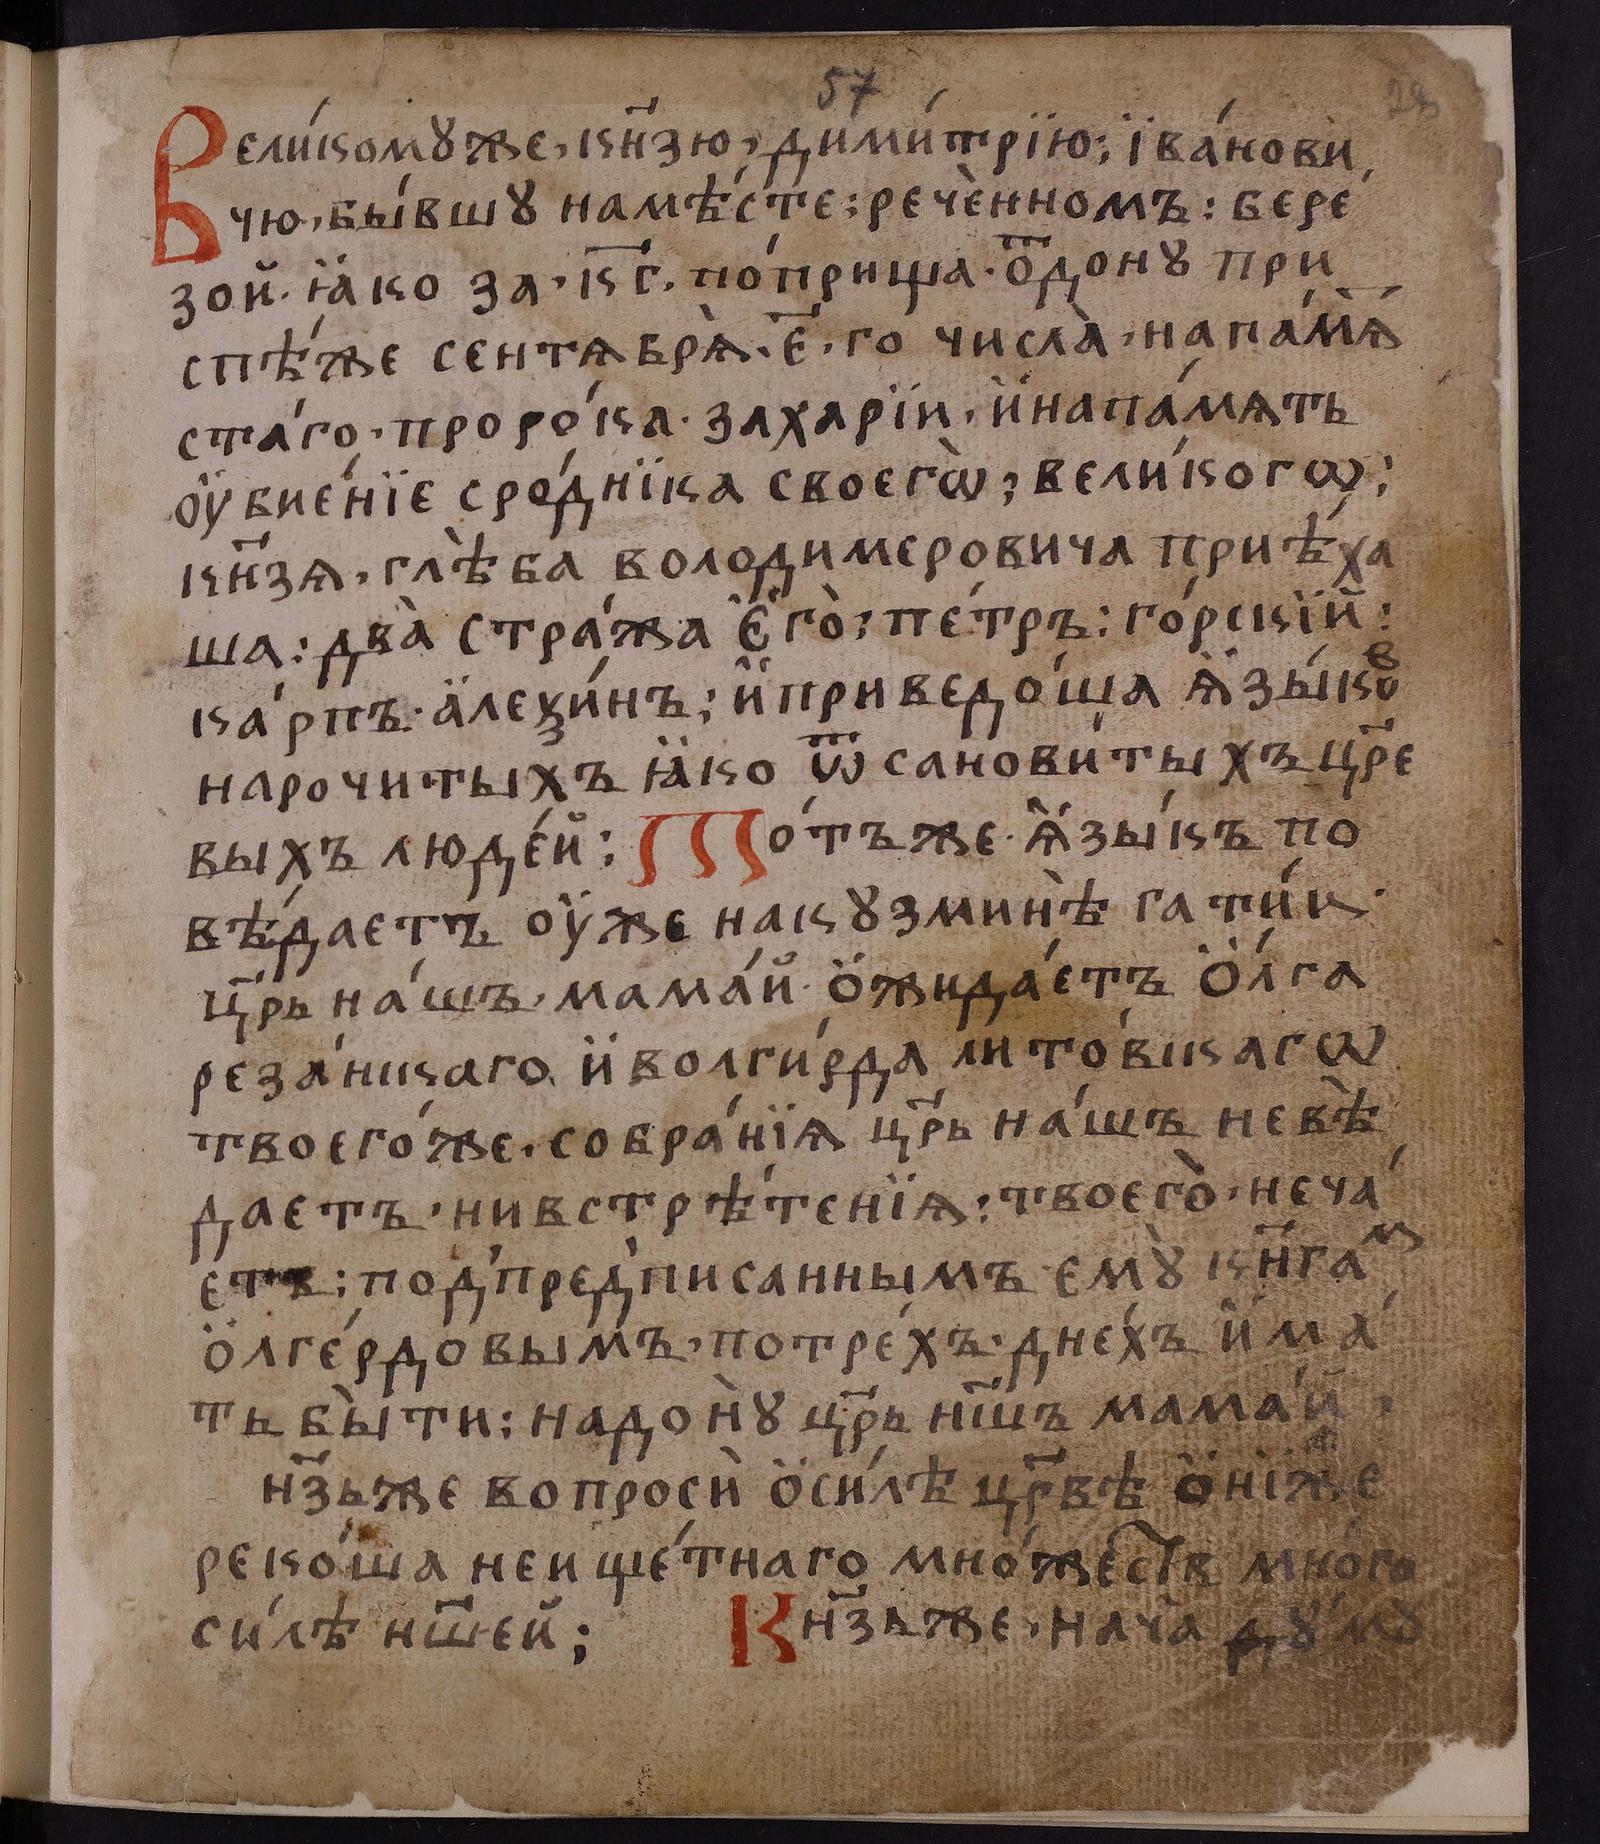 57
Вели́комꙋже, кн҃зю, дими́трїю; їва́нови
чю, бы́вшꙋ намѣ́сте; речѐнномъ: бере́
зой. ꙗ҆́ко за, к҃г. по́прища. ѿ донꙋ при
спѣ́же сентѧбрѧ̀. є҃. го числа̀, напа́мѧ
ста́го, проро́ка. захарїи, и҆напа́мѧть
оу҆бие́нїе сро́днїка своегѡ̀; вели́когѡ;
кн҃зѧ, глѣ̀ба володимеровича приѣ́ха
ша: два̀ стра́жа є҆го̀; пе́тръ: го́рскїй:
ка́рпъ. а҆леѯи́нъ; и҆приведо́ша ѧ҆зы́ковъ
нарочитыхъ ꙗ҆́ко ѿ санови́тыхъ цр҃е
выхъ люде́й: То́тъже. ѧ҆зы́къ по
вѣ́даетъ оу҆же накꙋзминѣ̀ гати́к
цр҃ь на́шъ, мама́й. о҆жида́етъ о҆́лга
реза́нскаго и҆волги́рда лито́вскагѡ
твоего́же, собра́нїѧ цр҃ь на́шъ невѣ̀
даетъ, нивстрѣ́тенїѧ; твоего̀, неча́
етъ; под̾пред̾писаннымъ емꙋ̀ кн҃гам
о҆лге́рдовымъ, потре́хъ, дне́хъ и҆ма́
ть бы̀ти; надонꙋ̀ цр҃ь нш҃ъ мама́й,
н҃зьже вопросѝ о҆си́лѣ цр҃вѣ о҆нїже
реко́ша неищетнаго мно́жеств мно́го
си́лѣ нш҃ей; Кн҃зьже, нача̀ дꙋ́мꙋ